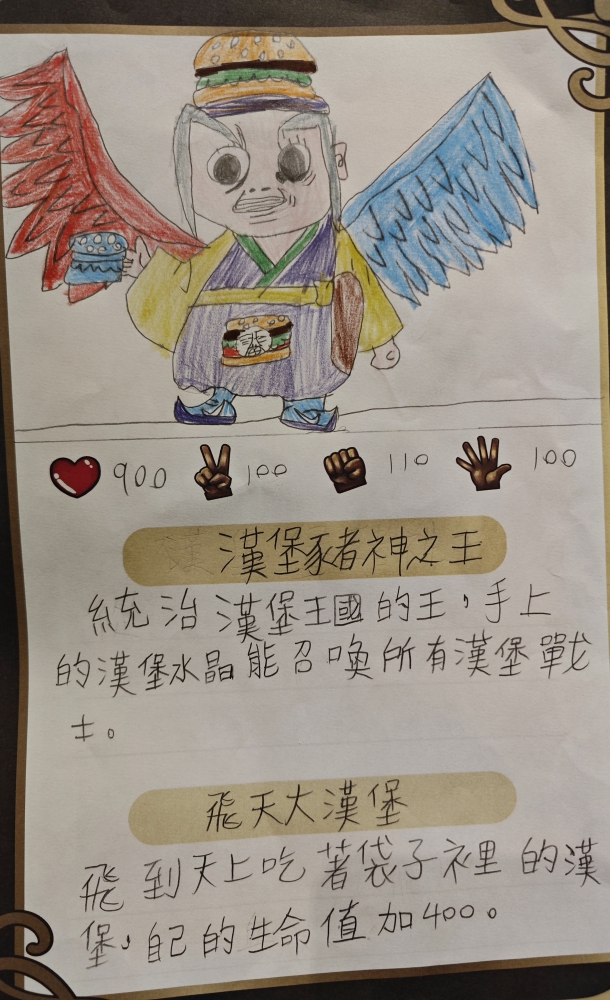 900 100 110 100
漢堡豬神之王
統治漢堡王國的王，手上
的漢堡水晶能召喚所有漢堡戰
士。
飛天大漢堡
飛到天上吃著袋子裡的漢
堡，自己的生命值加400。